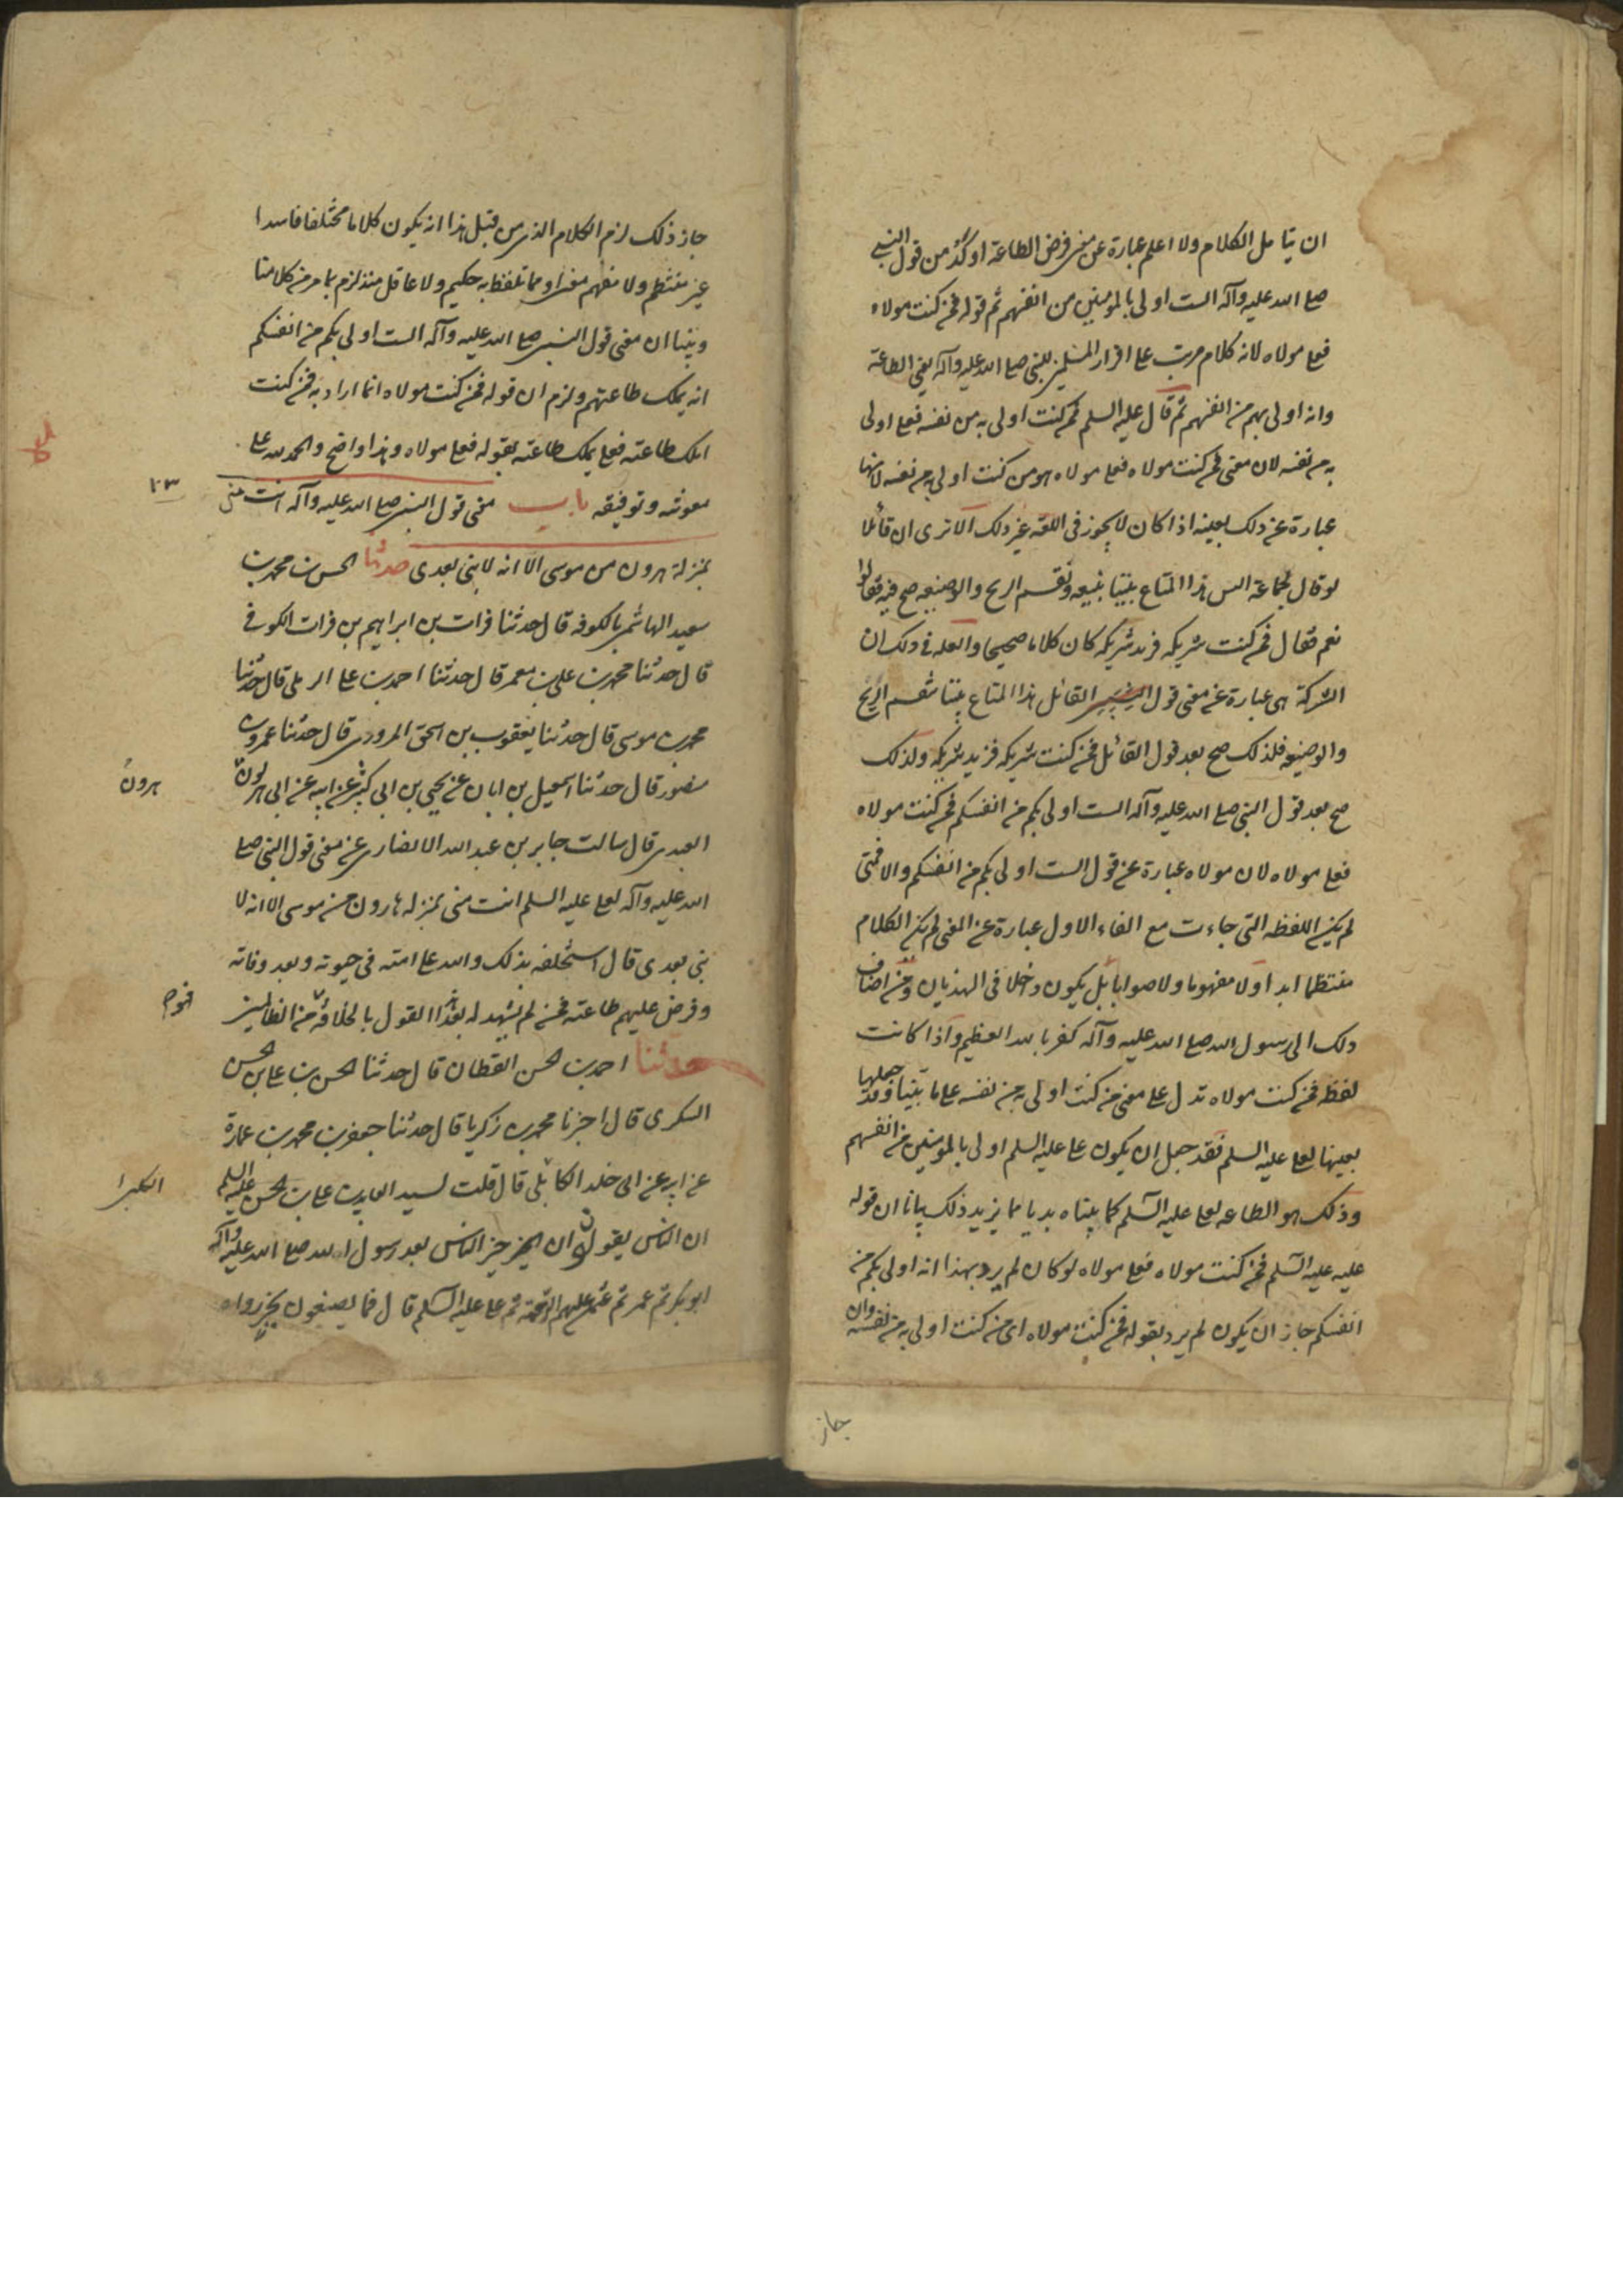 ان يتامل الكلام ولا اعلم عبارة عن معنى فرض الطاعة اوكد من قول النبي
صلى الله عليه وآله الست اولى بالمومنين من انفسهم ثم قوله فمن كنت مولاه
فعلى مولاه لانه كلام مرتب على اقرار المسلمين للنبى صلى الله عليه وآله يعنى الطاعة
وانه اولى بهم من انفسهم ثم قال عليه السلم فمن كنت اولى به من نفسه فعلى اولى
به من نفسه لان معنى فمن كنت مولاه فعلى مولاه هو من كنت اولى به من نفسه لانها
عبارة عن ذلك بعينه اذا كان لا يجوز فى اللغة غير ذلك الا ترى ان قائلا
لو قال لجماعة اليس هذا المتاع بيننا نبيعه ونقسم الربح والوضيعة فيه فقالوا
نعم فقال فمن كنت شريكه فزيد شريكه كان كلاما صحيحا والعله فى ذلك ان
الشركة هى عبارة عن معنى قول القائل هذا المتاع بيننا نقسم الربح
والوضيعة فلذلك صح بعد قول القائل فمن كنت شريكه فزيد شريكه ولذلك
صح بعد قول النبى صلى الله عليه وآله الست اولى بكم من انفسكم فمن كنت مولاه
فعلى مولاه لان مولاه عبارة عن قوله الست اولى بكم من انفسكم والا فمتى
لم يكن اللفظه التى جاءت مع الفاء الاول عبارة عن المعنى لم يكن الكلام
منتظما ابدا ولا مفهوما ولا صوابا بل يكون داخلا فى الهذيان ومن اضاف
ذلك الى رسول الله صلى الله عليه وآله كفر بالله العظيم واذا كانت
لفظة فمن كنت مولاه تدل على معنى من كنت اولى به من نفسه على ما بينا وقد جعلها
بعينها لعلى عليه السلم فقد جعل ان يكون على عليه السلم اولى بالمومنين من انفسهم
وذلك هو الطاعه لعلى عليه السلم كما بيناه بديا مما يزيد ذلك بيانا ان قوله
عليه عليه السلم فمن كنت مولاه فعلى مولاه لو كان لم يرد بهذا انه اولى بكم من
انفسكم جاز ان يكون لم يرد بقوله فمن كنت مولاه اى من كنت اولى به من نفسه وان
جاز
جاز ذلك لزم الكلام الذى من قبل هذا انه يكون كلاما مختلفا فاسدا
غير منتظم ولا مفهم معنى ولا مما تلفظ به حكيم ولا عاقل فقد لزم بما مر من كلامنا
وبينا ان معنى قول النبى صلى الله عليه وآله الست اولى بكم من انفسكم
انه يملك طاعتهم ولزم ان قوله فمن كنت مولاه انما اراد به فمن كنت
املك طاعته فعلى يملك طاعته بقوله فعلى مولاه وهذا واضح والحمد لله على
معونته وتوفيقه باب معنى قول النبى صلى الله عليه وآله انت منى
٢٣
بمنزلة هرون من موسى الا انه لا نبى بعدى حدثنا الحسن بن محمد بن
سعيد الهاشمى بالكوفه قال حدثنا فرات بن ابراهيم بن فرات الكوفى
قال حدثنا محمد بن على بن معمر قال حدثنا احمد بن على الرملى قال حدثنا
محمد بن موسى قال حدثنا يعقوب بن اسحق المروزى قال حدثنا عمرو بن
منصور قال حدثنا اسمعيل بن ابان عن يحيى بن ابى كثير عن ابيه عن ابى هرون
هرون
العبدى قال سالت جابر بن عبد الله الانصارى عن معنى قول النبى صلى
الله عليه وآله لعلى عليه السلم انت منى بمنزله هارون من موسى الا انه لا
نبى بعدى قال استخلفه بذلك والله على امته فى حيوته وبعد وفاته
وفرض عليهم طاعته فمن لم يشهد له بعد هذا القول بالخلافة من الظالمين
حدثنا احمد بن الحسن القطان قال حدثنا الحسن بن على بن الحسن
السكرى قال اخبرنا محمد بن زكريا قال حدثنا جعفر بن محمد بن عمارة
عن ابيه عن ابى خلد الكابلى قال قلت لسيد العابدين على بن الحسن عليه السلم
ان الناس يقولون ان خير الناس بعد رسول الله صلى الله عليه وآله
ابو بكر ثم عمر ثم عثمن ثم على عليه السلم قال فما يصنعون بخبر رواه